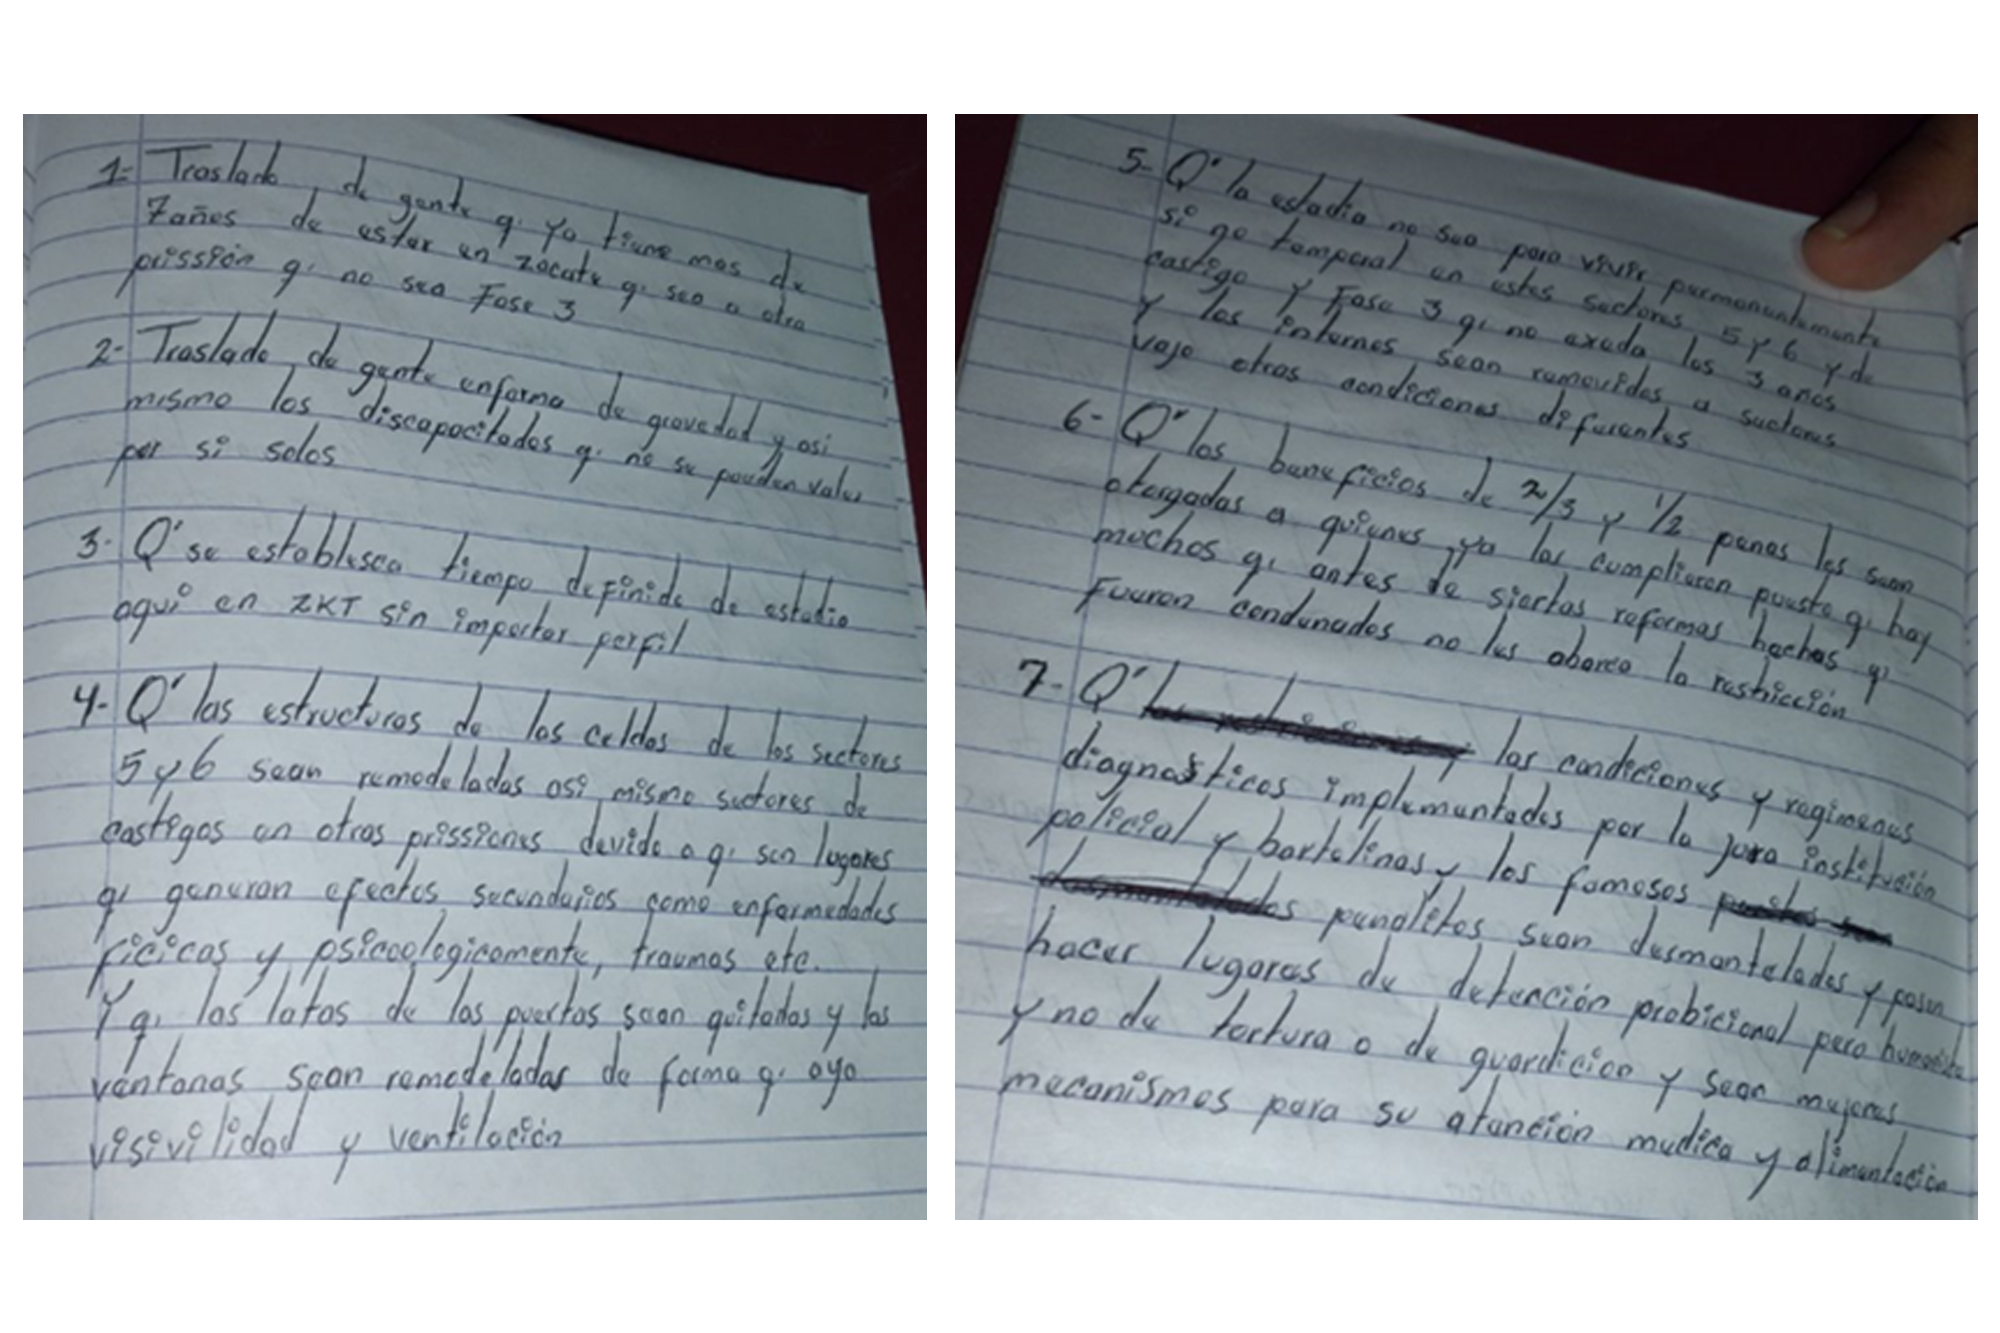 1= Traslado de gente q' ya tiene mas de
7años de estar en zacate q' sea a otra
prissión q' no sea Fase 3
2- Traslado de gente enferma de gravedad y asi
mismo los discapacitados q' no se pueden valer
por si solos
3- Q' se establesca tiempo definido de estadia
aqui en ZKT sin importar perfil
4- Q' las estructuras de las celdas de los sectores
5 y 6 sean remodeladas asi mismo sectores de
castigos en otras prissiones devido a q' son lugares
q' generan efectos secundarios como enfermedades
ficicas y psicologicamente, traumas etc.
Y q' las latas de las puertas sean quitadas y las
ventanas sean remodeladas de forma q' aya
visivilidad y ventilación
5- Q' la estadia no sea para vivir permanentemente
si no temporal en estos sectores 5 y 6 y de
castigo y Fase 3 q' no exeda los 3 años
y los internos sean removidos a sectores
vajo otras condiciones diferentes
6- Q' los beneficios de 2/3 y 1/2 penas les sean
otorgadas a quienes ya las cumplieron puesto q' hay
muchos q' antes de siertas reformas hechas q'
Fueron condenados no les abarca la restricción
7- Q' las condiciones y regimenes
diagnosticos implementados por la jura institución
policial y bartolinas y los famosos
penalitos sean desmantelados y pasen
hacer lugares de detención probicional pero humanista
y no de tortura o de guardicion y sean mejores
mecanismos para su atención medica y alimentación